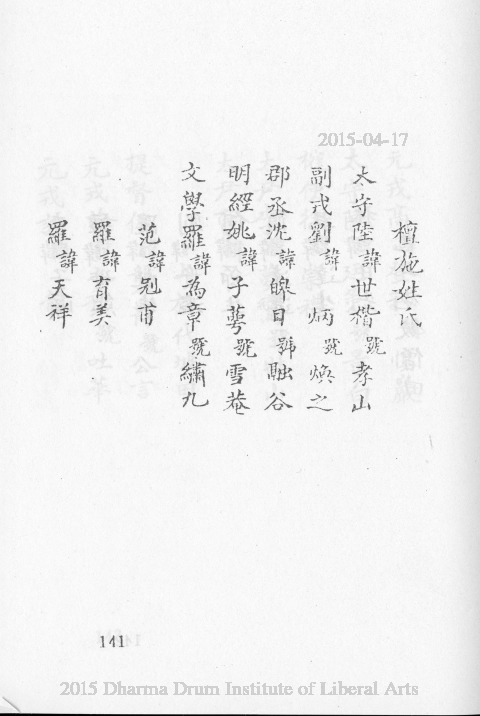 2015-04-17
檀施姓氏
太守陸諱世楷號孝山
副戎劉諱炳號煥之
郡丞沈諱皞日號融谷
明經姚諱子蕚號雪菴
文學羅諱為章號繡九
范諱剋甫
羅諱育美
羅諱天祥
141
2015 Dharma Drum Institute of Liberal Arts